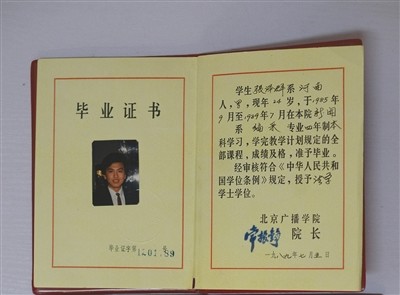 毕业证书
毕业证字第 号
学生张泽群系河南
人,男,现年24岁,于1985年
9月至1989年7月在本院新闻
系编采专业四年制本
科学习,学完教学计划规定的全
部课程,成绩及格,准予毕业。
经审核符合《中华人民共和
国学位条例》规定,授予法学
学士学位。
北京广播学院
院长
一九八九年七月五日